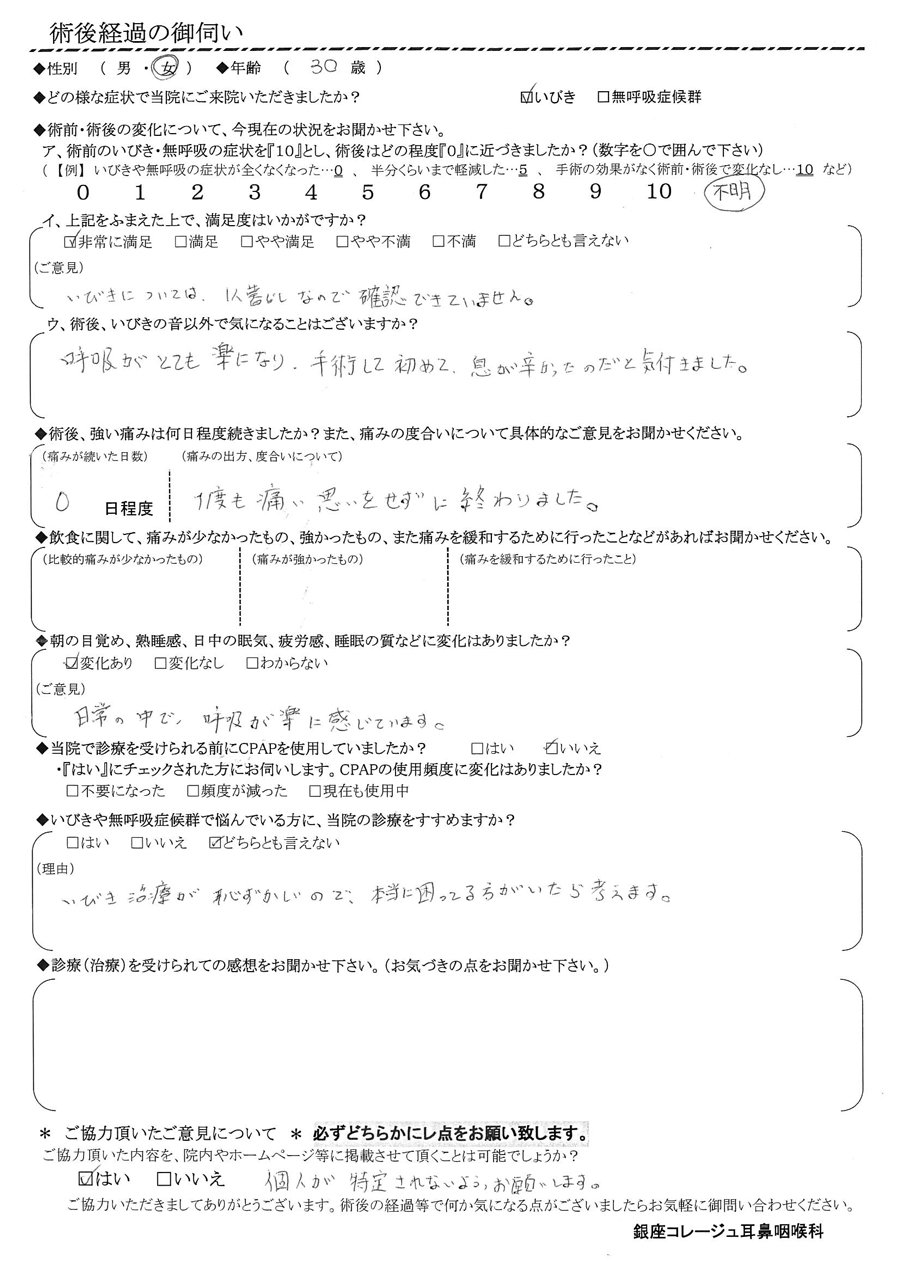 術後経過の御伺い
◆性別 （ 男 ・ 女 ） ◆年齢 （ 30 歳 ）
◆どの様な症状で当院にご来院いただきましたか？ ☑いびき □無呼吸症候群
◆術前・術後の変化について、今現在の状況をお聞かせ下さい。
ア、術前のいびき・無呼吸の症状を『10』とし、術後はどの程度『0』に近づきましたか？（数字を〇で囲んで下さい）
（ 【例】 いびきや無呼吸の症状が全くなくなった…0 、 半分くらいまで軽減した…5 、 手術の効果がなく術前・術後で変化なし…10 など）
0 1 2 3 4 5 6 7 8 9 10 不明
イ、上記をふまえた上で、満足度はいかがですか？
☑非常に満足 □満足 □やや満足 □やや不満 □不満 □どちらとも言えない
（ご意見）
いびきについては、1人暮らしなので確認できていません。
ウ、術後、いびきの音以外で気になることはございますか？
呼吸がとても楽になり、手術して初めて、息が辛かったのだと気付きました。
◆術後、強い痛みは何日程度続きましたか？また、痛みの度合いについて具体的なご意見をお聞かせください。
（痛みが続いた日数） （痛みの出方、度合いについて）
0 日程度 1度も痛い思いをせずに終わりました。
◆飲食に関して、痛みが少なかったもの、強かったもの、また痛みを緩和するために行ったことなどがあればお聞かせください。
（比較的痛みが少なかったもの） （痛みが強かったもの） （痛みを緩和するために行ったこと）
◆朝の目覚め、熟睡感、日中の眠気、疲労感、睡眠の質などに変化はありましたか？
☑変化あり □変化なし □わからない
（ご意見）
日常の中で、呼吸が楽に感じています。
◆当院で診療を受けられる前にCPAPを使用していましたか？ □はい ☑いいえ
・『はい』にチェックされた方にお伺いします。CPAPの使用頻度に変化はありましたか？
□不要になった □頻度が減った □現在も使用中
◆いびきや無呼吸症候群で悩んでいる方に、当院の診療をすすめますか？
□はい □いいえ ☑どちらとも言えない
（理由）
いびき治療が恥ずかしいので、本当に困ってる方がいたら考えます。
◆診療（治療）を受けられての感想をお聞かせ下さい。（お気づきの点をお聞かせ下さい。）
＊ ご協力頂いたご意見について ＊ 必ずどちらかにレ点をお願い致します。
ご協力頂いた内容を、院内やホームページ等に掲載させて頂くことは可能でしょうか？
☑はい □いいえ 個人が特定されないよう、お願いします。
ご協力いただきましてありがとうございます。術後の経過等で何か気になる点がございましたらお気軽に御問い合わせください。
銀座コレージュ耳鼻咽喉科